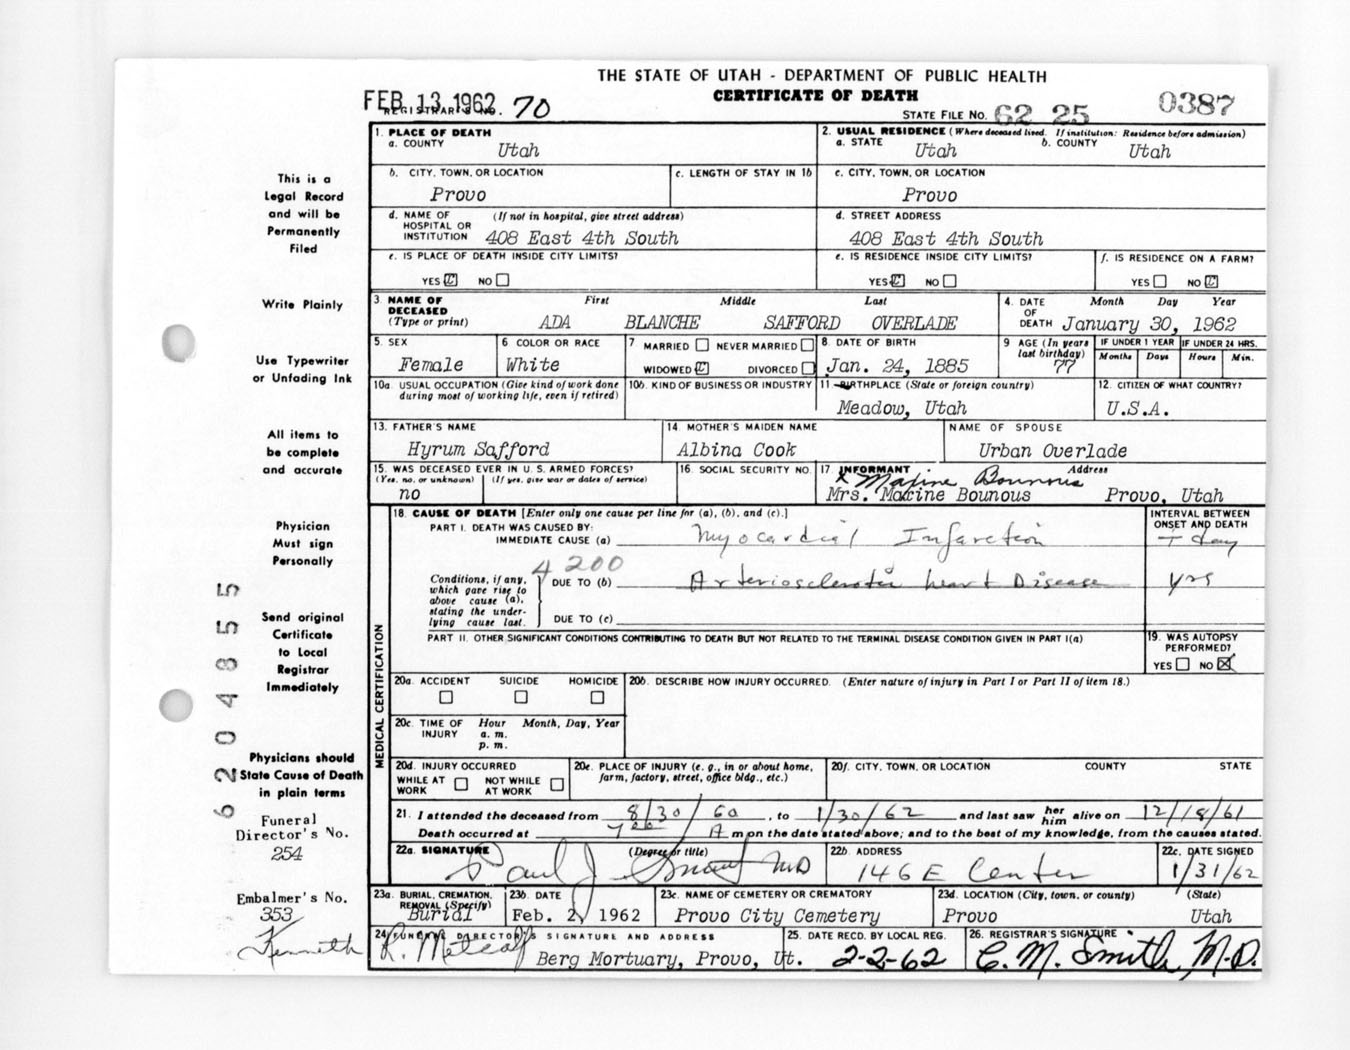 THE STATE OF UTAH - DEPARTMENT OF PUBLIC HEALTH
CERTIFICATE OF DEATH
FEB 13 1962
REGISTRAR'S NO. 70
STATE FILE NO. 62 25 0387
This is a
Legal Record
and will be
Permanently
Filed
Write Plainly
Use Typewriter
or Unfading Ink
All items to
be complete
and accurate
Physician
Must sign
Personally
Send original
Certificate
to Local
Registrar
Immediately
Physicians should
State Cause of Death
in plain terms
Funeral
Director's No.
254
Embalmer's No.
353
6204855
1. PLACE OF DEATH
a. COUNTY Utah
2. USUAL RESIDENCE (Where deceased lived. If institution: Residence before admission)
a. STATE Utah b. COUNTY Utah
b. CITY, TOWN, OR LOCATION Provo
c. LENGTH OF STAY IN 1b
c. CITY, TOWN, OR LOCATION Provo
d. NAME OF HOSPITAL OR INSTITUTION (If not in hospital, give street address) 408 East 4th South
d. STREET ADDRESS 408 East 4th South
e. IS PLACE OF DEATH INSIDE CITY LIMITS?
YES NO
e. IS RESIDENCE INSIDE CITY LIMITS?
YES NO
f. IS RESIDENCE ON A FARM?
YES NO
3. NAME OF DECEASED (Type or print) First Middle Last
ADA BLANCHE SAFFORD OVERLADE
4. DATE OF DEATH Month Day Year
January 30, 1962
5. SEX Female
6 COLOR OR RACE White
7 MARRIED NEVER MARRIED
WIDOWED DIVORCED
8. DATE OF BIRTH Jan. 24, 1885
9 AGE (In years last birthday) 77
IF UNDER 1 YEAR Months Days
IF UNDER 24 HRS. Hours Min.
10a. USUAL OCCUPATION (Give kind of work done during most of working life, even if retired)
10b. KIND OF BUSINESS OR INDUSTRY
11. BIRTHPLACE (State or foreign country) Meadow, Utah
12. CITIZEN OF WHAT COUNTRY? U.S.A.
13. FATHER'S NAME Hyrum Safford
14. MOTHER'S MAIDEN NAME Albina Cook
NAME OF SPOUSE Urban Overlade
15. WAS DECEASED EVER IN U.S. ARMED FORCES?
(Yes, no, or unknown) (If yes, give war or dates of service)
no
16. SOCIAL SECURITY NO.
17. INFORMANT Address
x Maxine Bounous
Mrs. Maxine Bounous Provo, Utah
MEDICAL CERTIFICATION
18. CAUSE OF DEATH [Enter only one cause per line for (a), (b), and (c).]
INTERVAL BETWEEN ONSET AND DEATH
PART I. DEATH WAS CAUSED BY:
IMMEDIATE CAUSE (a) Myocardial Infarction day
4200
Conditions, if any, which gave rise to above cause (a), stating the underlying cause last.
DUE TO (b) Arteriosclerotic heart Disease yrs
DUE TO (c)
PART II. OTHER SIGNIFICANT CONDITIONS CONTRIBUTING TO DEATH BUT NOT RELATED TO THE TERMINAL DISEASE CONDITION GIVEN IN PART I(a)
19. WAS AUTOPSY PERFORMED?
YES NO
20a. ACCIDENT SUICIDE HOMICIDE
20b. DESCRIBE HOW INJURY OCCURRED. (Enter nature of injury in Part I or Part II of item 18.)
20c. TIME OF INJURY Hour a. m. p. m. Month, Day, Year
20d. INJURY OCCURRED
WHILE AT WORK NOT WHILE AT WORK
20e. PLACE OF INJURY (e. g., in or about home, farm, factory, street, office bldg., etc.)
20f. CITY, TOWN, OR LOCATION COUNTY STATE
21. I attended the deceased from 8/30/60, to 1/30/62 and last saw her him alive on 12/18/61
Death occurred at 7 00 A m on the date stated above; and to the best of my knowledge, from the causes stated.
22a. SIGNATURE (Degree or title) Paul J. Smart MD
22b. ADDRESS 146 E Center
22c. DATE SIGNED 1/31/62
23a. BURIAL, CREMATION, REMOVAL (Specify) Burial
23b. DATE Feb. 2, 1962
23c. NAME OF CEMETERY OR CREMATORY Provo City Cemetery
23d. LOCATION (City, town, or county) (State)
Provo Utah
24. FUNERAL DIRECTOR'S SIGNATURE AND ADDRESS
Kenneth R. Metcalf Berg Mortuary, Provo, Ut.
25. DATE RECD. BY LOCAL REG. 2-2-62
26. REGISTRAR'S SIGNATURE C. M. Smith, M.D.